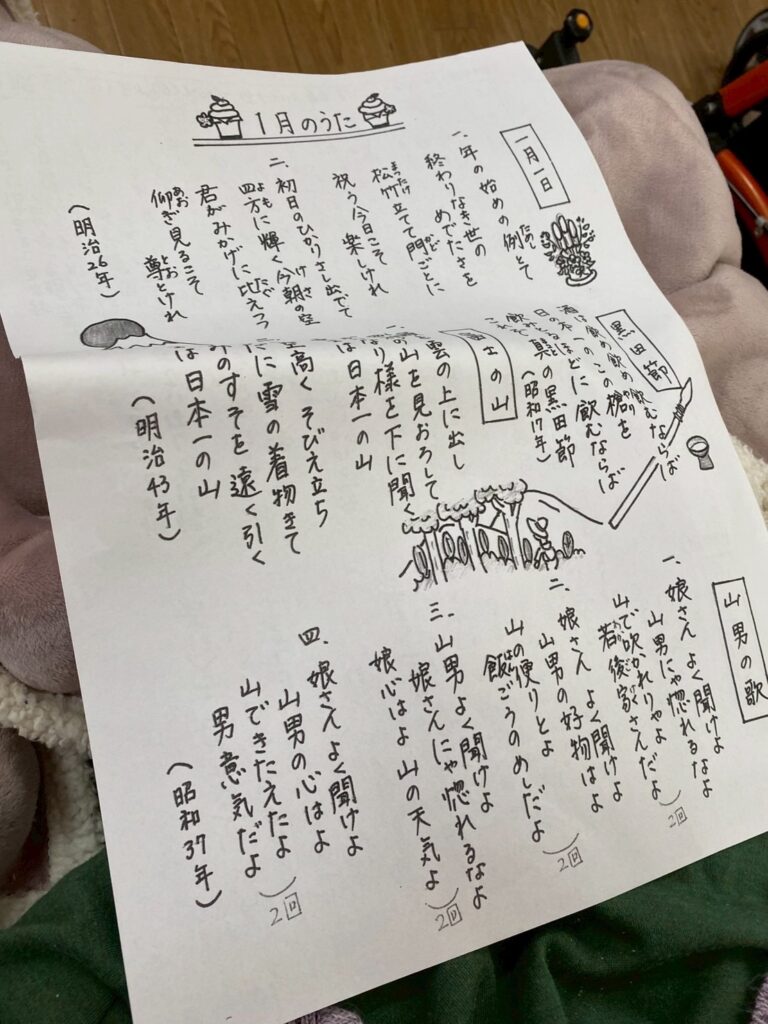 1月のうた
一月一日
一、年の始めの 例とて
終わりなき世の めでたさを
松竹立てて 門ごとに
祝う今日こそ 楽しけれ
二、初日のひかり さし出でて
四方に輝く 今朝の空
君がみかげに 比えつつ
仰ぎ見るこそ 尊とけれ
(明治26年)
黒田節
酒は飲め飲め 飲むならば
日の本一の この槍を
飲みとるほどに 飲むならば
これぞ真の黒田節
(昭和17年)
士の山
雲の上に出し
の山を見おろして
なり様を下に聞く
は日本一の山
高く そびえ立ち
に雪の着物きて
のすそを遠く引く
は日本一の山
(明治43年)
山男の歌
一、娘さん よく聞けよ
山男にゃ惚れるなよ
山で吹かれりゃよ
若後家さんだよ
2回
二、娘さん よく聞けよ
山男の好物はよ
山の便りとよ
飯ごうのめしだよ
2回
三、山男よく聞けよ
娘さんにゃ惚れるなよ
娘心はよ 山の天気よ
2回
四、娘さん よく聞けよ
山男の心はよ
山できたえたよ
男意気だよ
2回
(昭和37年)